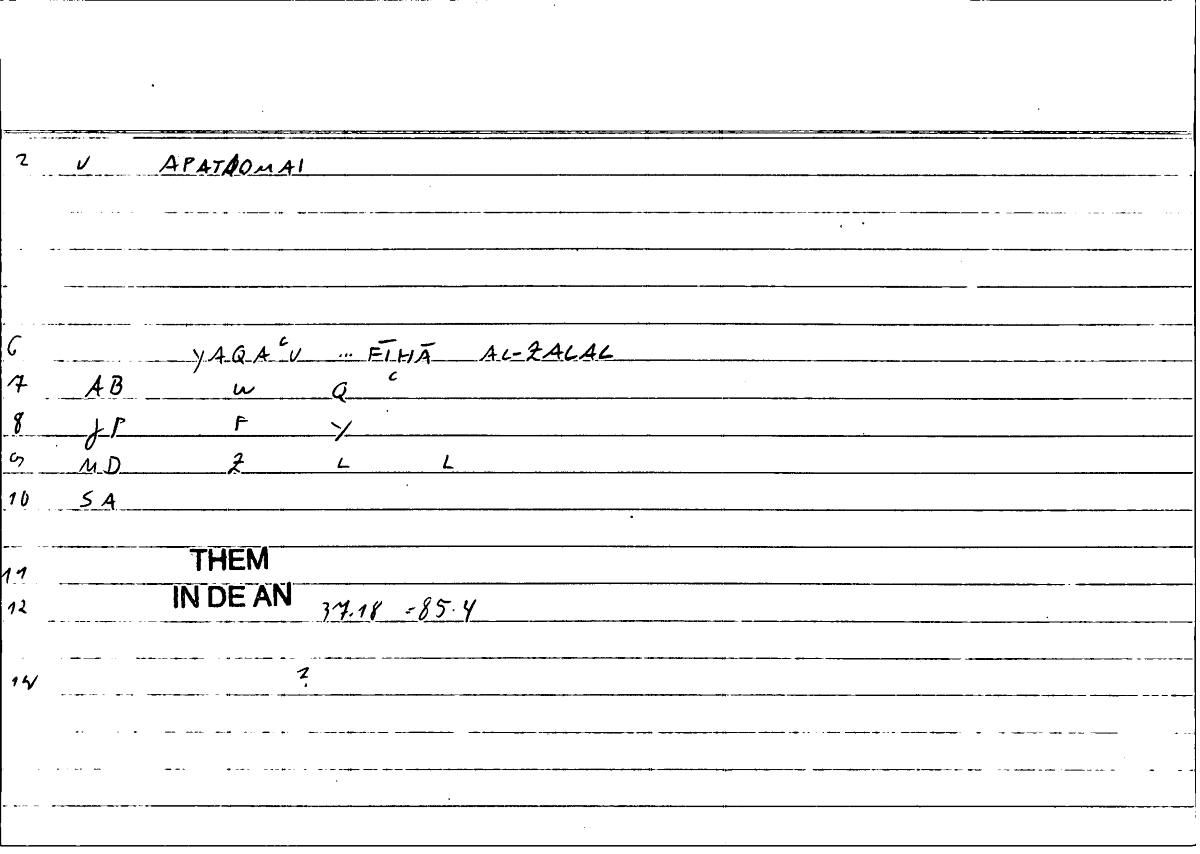 2 V APATAOMAI
6 YAQAᶜU ... FĪHĀ AL-ZALAL
7 AB W Q ᶜ
8 JP F Y
9 MD Z L L
10 SA
11 THEM
12 IN DE AN 37.18 =85.4
14 ?